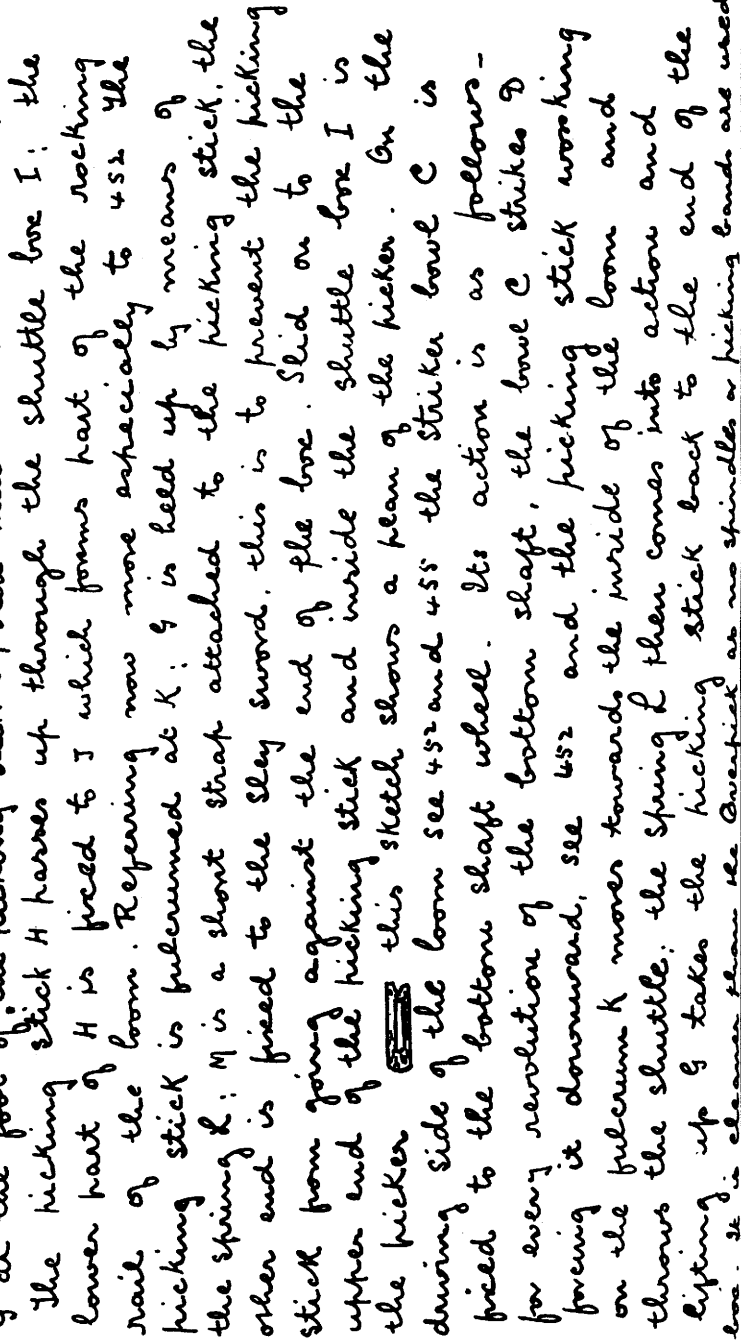 at the foot of the picking
The picking stick H passes up through the shuttle box I: the
lower part of H is fixed to J which forms part of the rocking
rail of the loom. Referring now more especially to 452 the
picking stick is fulcrumed at K: G is held up by means of
the spring L: M is a short strap attached to the picking stick, the
other end is fixed to the sley sword, this is to prevent the picking
stick from going against the end of the box. Slid on to the
upper end of the picking stick and inside the shuttle box I is
the picker this sketch shows a plan of the picker. On the
driving side of the loom see 452 and 455 the striker bowl C is
fixed to the bottom shaft wheel. Its action is as follows-
for every revolution of the bottom shaft, the bowl C strikes D
forcing it downward, see 452 and the picking stick working
on the fulcrum K moves towards the inside of the loom and
throws the shuttle: the spring L then comes into action and
lifting up G takes the picking stick back to the end of the
box. It is cleaner than the Overpick as no spindles or picking bands are used